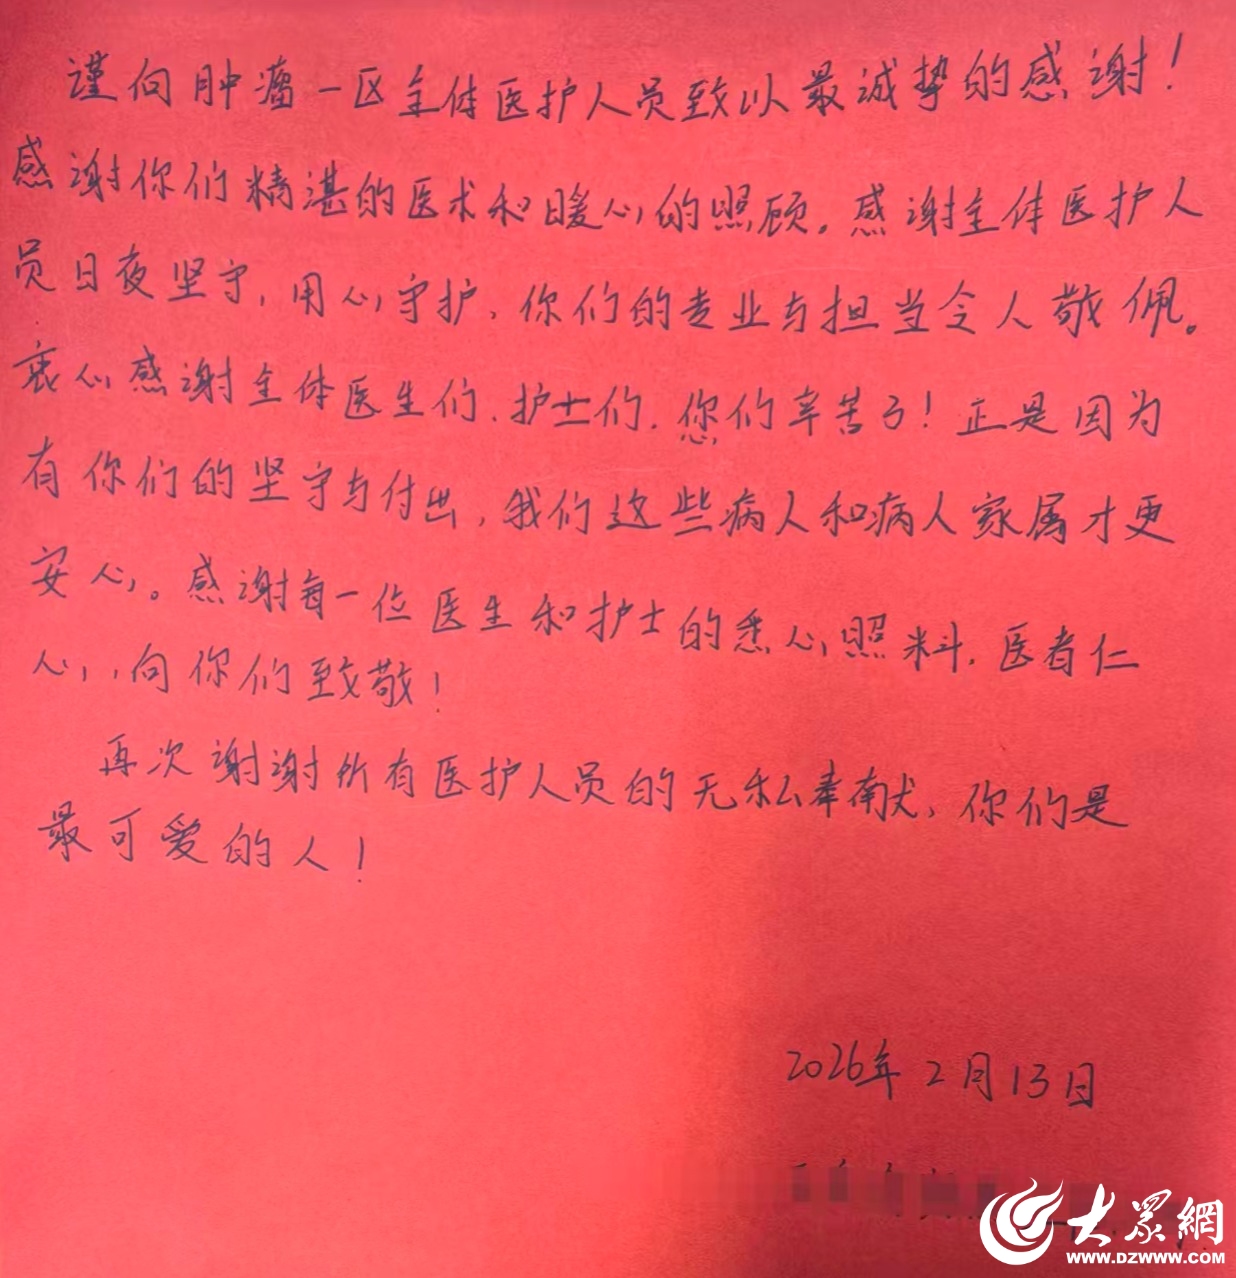 谨向肿瘤一区全体医护人员致以最诚挚的感谢！
感谢你们精湛的医术和暖心的照顾。感谢全体医护人
员日夜坚守，用心守护，你们的专业与担当令人敬佩。
衷心感谢全体医生们、护士们，您们辛苦了！正是因为
有你们的坚守与付出，我们这些病人和病人家属才更
安心。感谢每一位医生和护士的悉心照料，医者仁
心，向你们致敬！
再次谢谢所有医护人员的无私奉献，你们是
最可爱的人！
2026年2月13日
大眾網
WWW.DZWWW.COM